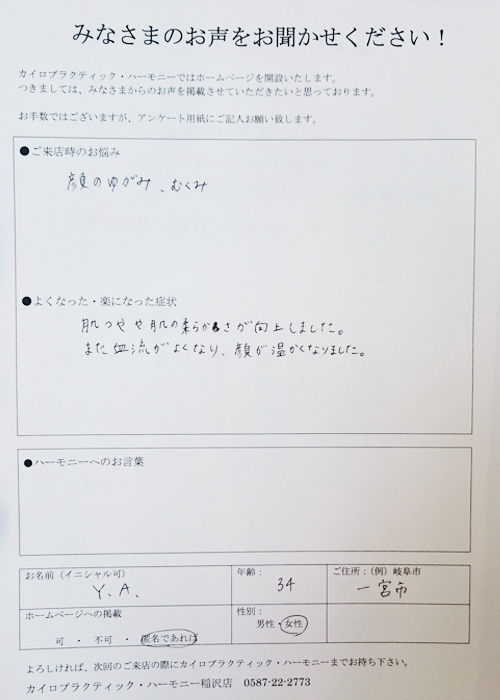 みなさまのお声をお聞かせください！
カイロプラクティック・ハーモニーではホームページを開設いたします。
つきましては、みなさまからのお声を掲載させていただきたいと思っております。
お手数ではございますが、アンケート用紙にご記入お願い致します。
●ご来店時のお悩み
顔のゆがみ、むくみ
●よくなった・楽になった症状
肌つやや肌の柔らかさが向上しました。
また血流がよくなり、顔が温かくなりました。
●ハーモニーへのお言葉
お名前（イニシャル可） 年齢： ご住所：（例）岐阜市
Y. A. 34 一宮市
ホームページへの掲載 性別：
可 ・ 不可 ・ 匿名であれば 男性・女性
よろしければ、次回のご来店の際にカイロプラクティック・ハーモニーまでお持ち下さい。
カイロプラクティック・ハーモニー稲沢店 0587-22-2773